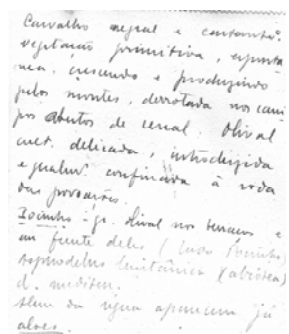 Carvalho negral e castanho:
vegetação primitiva, espontâ
nea, crescendo e produzindo
pelos montes, derrotada nos cam
pos abertos de cereal. Olival
cult. delicada, introduzida
e qualur confinada à roda
das povoações.
Pocinho - gr. olival nos terraços e
em frente deles (lado Pocinho)
asphodelus lusitânica (abrótea)
d. mediten.
Além da água aparecem já
alvos.